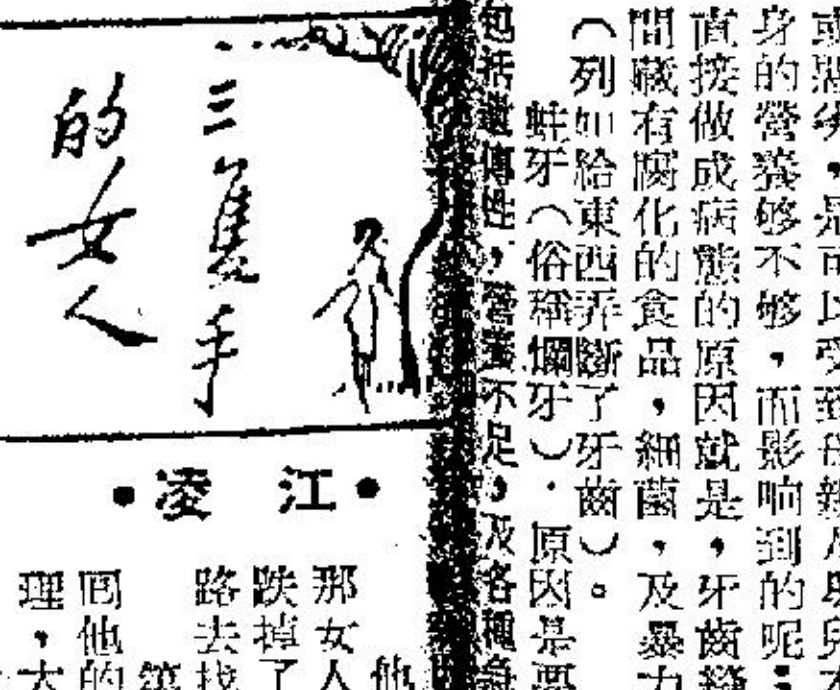 身的營養够不够，而影响到的呢；
直接做成病態的原因就是，牙齒
間藏有腐化的食品，細菌，及暴力
（列如給東西弄斷了牙齒）。
蛀牙（俗稱爛牙）．原因是
包括遺傳性，營養不足，及各種
三隻手
的女人
•江凌•
他
那女人
跌掉了
路去找
第
囘他的
理，大